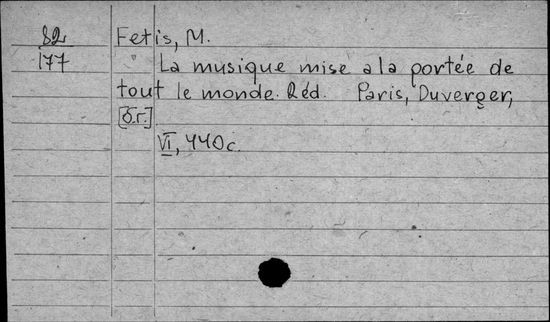 82
177
Fetis, M.
La musique mise a la portée de
tout le monde. 2éd. Paris, Duverger,
[б.г.]
VI, 440c.